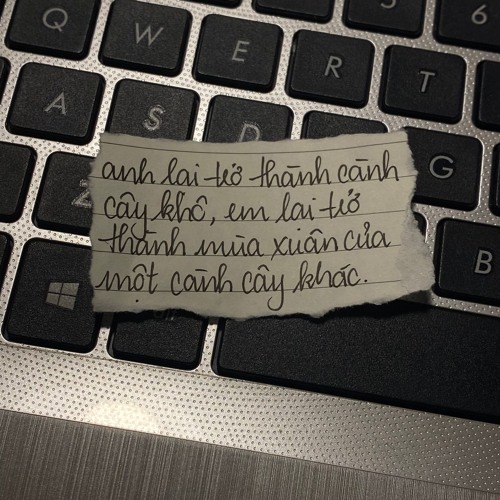 5
6
Q W E R T
A S D G
Z B
anh lai trở thành cành
cây khô, em lai trở
thành mùa xuân của
một cành cây khác.